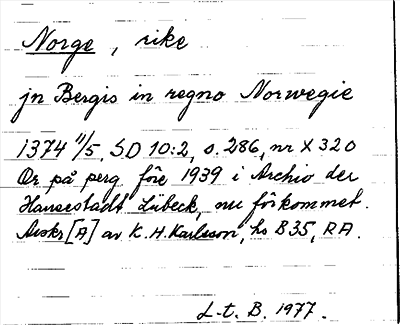 Norge, rike
jn Bergis in regno Norwegie
1374 11/5, SD 10:2, s. 286, nr X 320
Or på perg före 1939 i Archiv der
Hansestadt Lübeck, nu förkommet.
Avskr [A] av K. H. Karlsson, hs B 35, RA.
L-t. B. 1977.